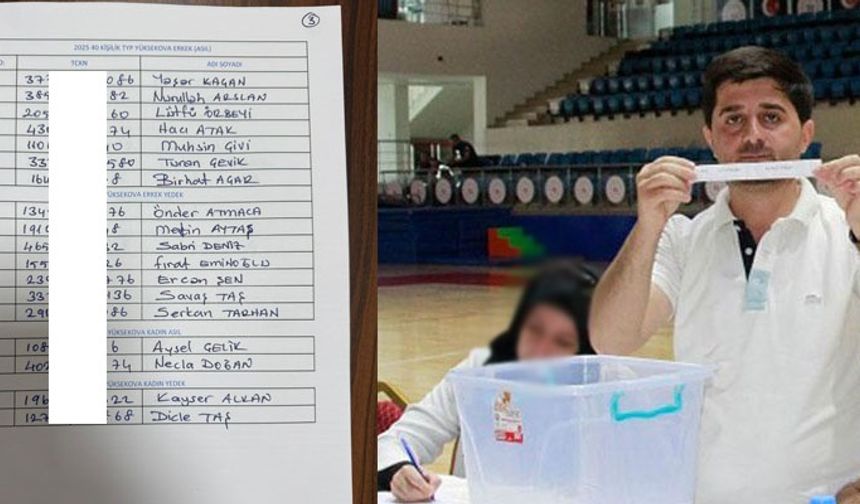 3
2025 40 KİŞİLİK TYP YÜKSEKOVA ERKEK (ASIL)
TCKN ADI SOYADI
086 Yaşar KAGAN
385 82 Nurullah ARSLAN
205 60 Lütfü ÖRBEYİ
74 Hacı ATAK
Muhsin GİVİ
580 Turan ÇEVİK
8 Birhat AGAR
YÜKSEKOVA ERKEK YEDEK
134 76 Önder ATMACA
191 8 Metin AYTAŞ
465 32 Sabri DENİZ
155 26 Fırat EMİNOĞLU
776 Ercan ŞEN
337 136 Savaş TAŞ
086 Serkan TARHAN
YÜKSEKOVA KADIN ASIL
108 6 Aysel ÇELİK
402 74 Necla DOĞAN
YÜKSEKOVA KADIN YEDEK
196 22 Kayser ALKAN
127 68 Dicle TAŞ